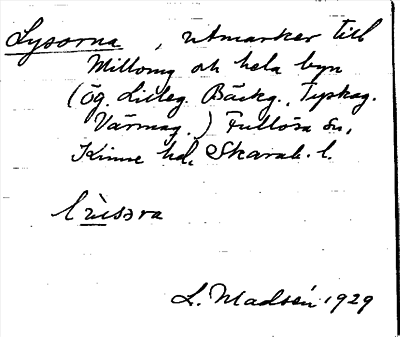 Lysorna, utmarker till
Millomg och hela byn
(Ög. Lilleg. Bäckg., Typkag.
Värmag.) Fullösa sn,
Kinne hd, Skarab. l.
L. Madsén 1929